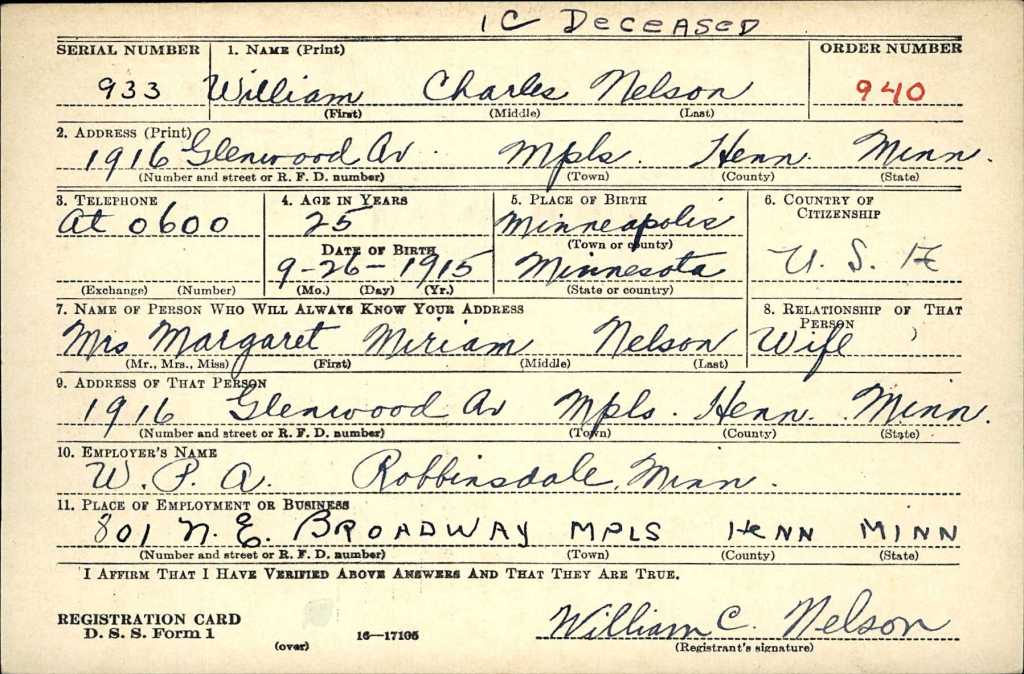 1C DECEASED
SERIAL NUMBER 1. NAME (Print) ORDER NUMBER
933 William Charles Nelson 940
(First) (Middle) (Last)
2. ADDRESS (Print)
1916 Glenwood Av. Mpls. Henn. Minn.
(Number and street or R. F. D. number) (Town) (County) (State)
3. TELEPHONE 4. AGE IN YEARS 5. PLACE OF BIRTH 6. COUNTRY OF CITIZENSHIP
At 0600 25 Minneapolis
(Town or county)
DATE OF BIRTH
9-26-1915 Minnesota U. S. A
(Exchange) (Number) (Mo.) (Day) (Yr.) (State or country)
7. NAME OF PERSON WHO WILL ALWAYS KNOW YOUR ADDRESS 8. RELATIONSHIP OF THAT PERSON
Mrs Margaret Miriam Nelson Wife
(Mr., Mrs., Miss) (First) (Middle) (Last)
9. ADDRESS OF THAT PERSON
1916 Glenwood Av Mpls. Henn. Minn.
(Number and street or R. F. D. number) (Town) (County) (State)
10. EMPLOYER'S NAME
W. P. A. Robbinsdale, Minn.
11. PLACE OF EMPLOYMENT OR BUSINESS
801 N. E. BROADWAY MPLS HENN MINN
(Number and street or R. F. D. number) (Town) (County) (State)
I AFFIRM THAT I HAVE VERIFIED ABOVE ANSWERS AND THAT THEY ARE TRUE.
REGISTRATION CARD
D. S. S. Form 1 16—17105 William C. Nelson
(over) (Registrant's signature)